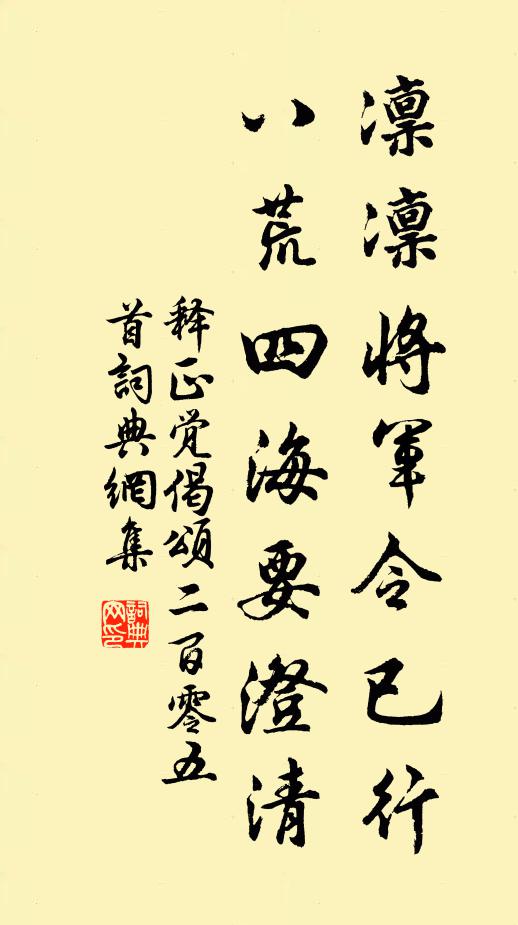 凛凛将军令已行
八荒四海要澄清
释正觉偈颂二百零五
首词典網集
詞典
网印